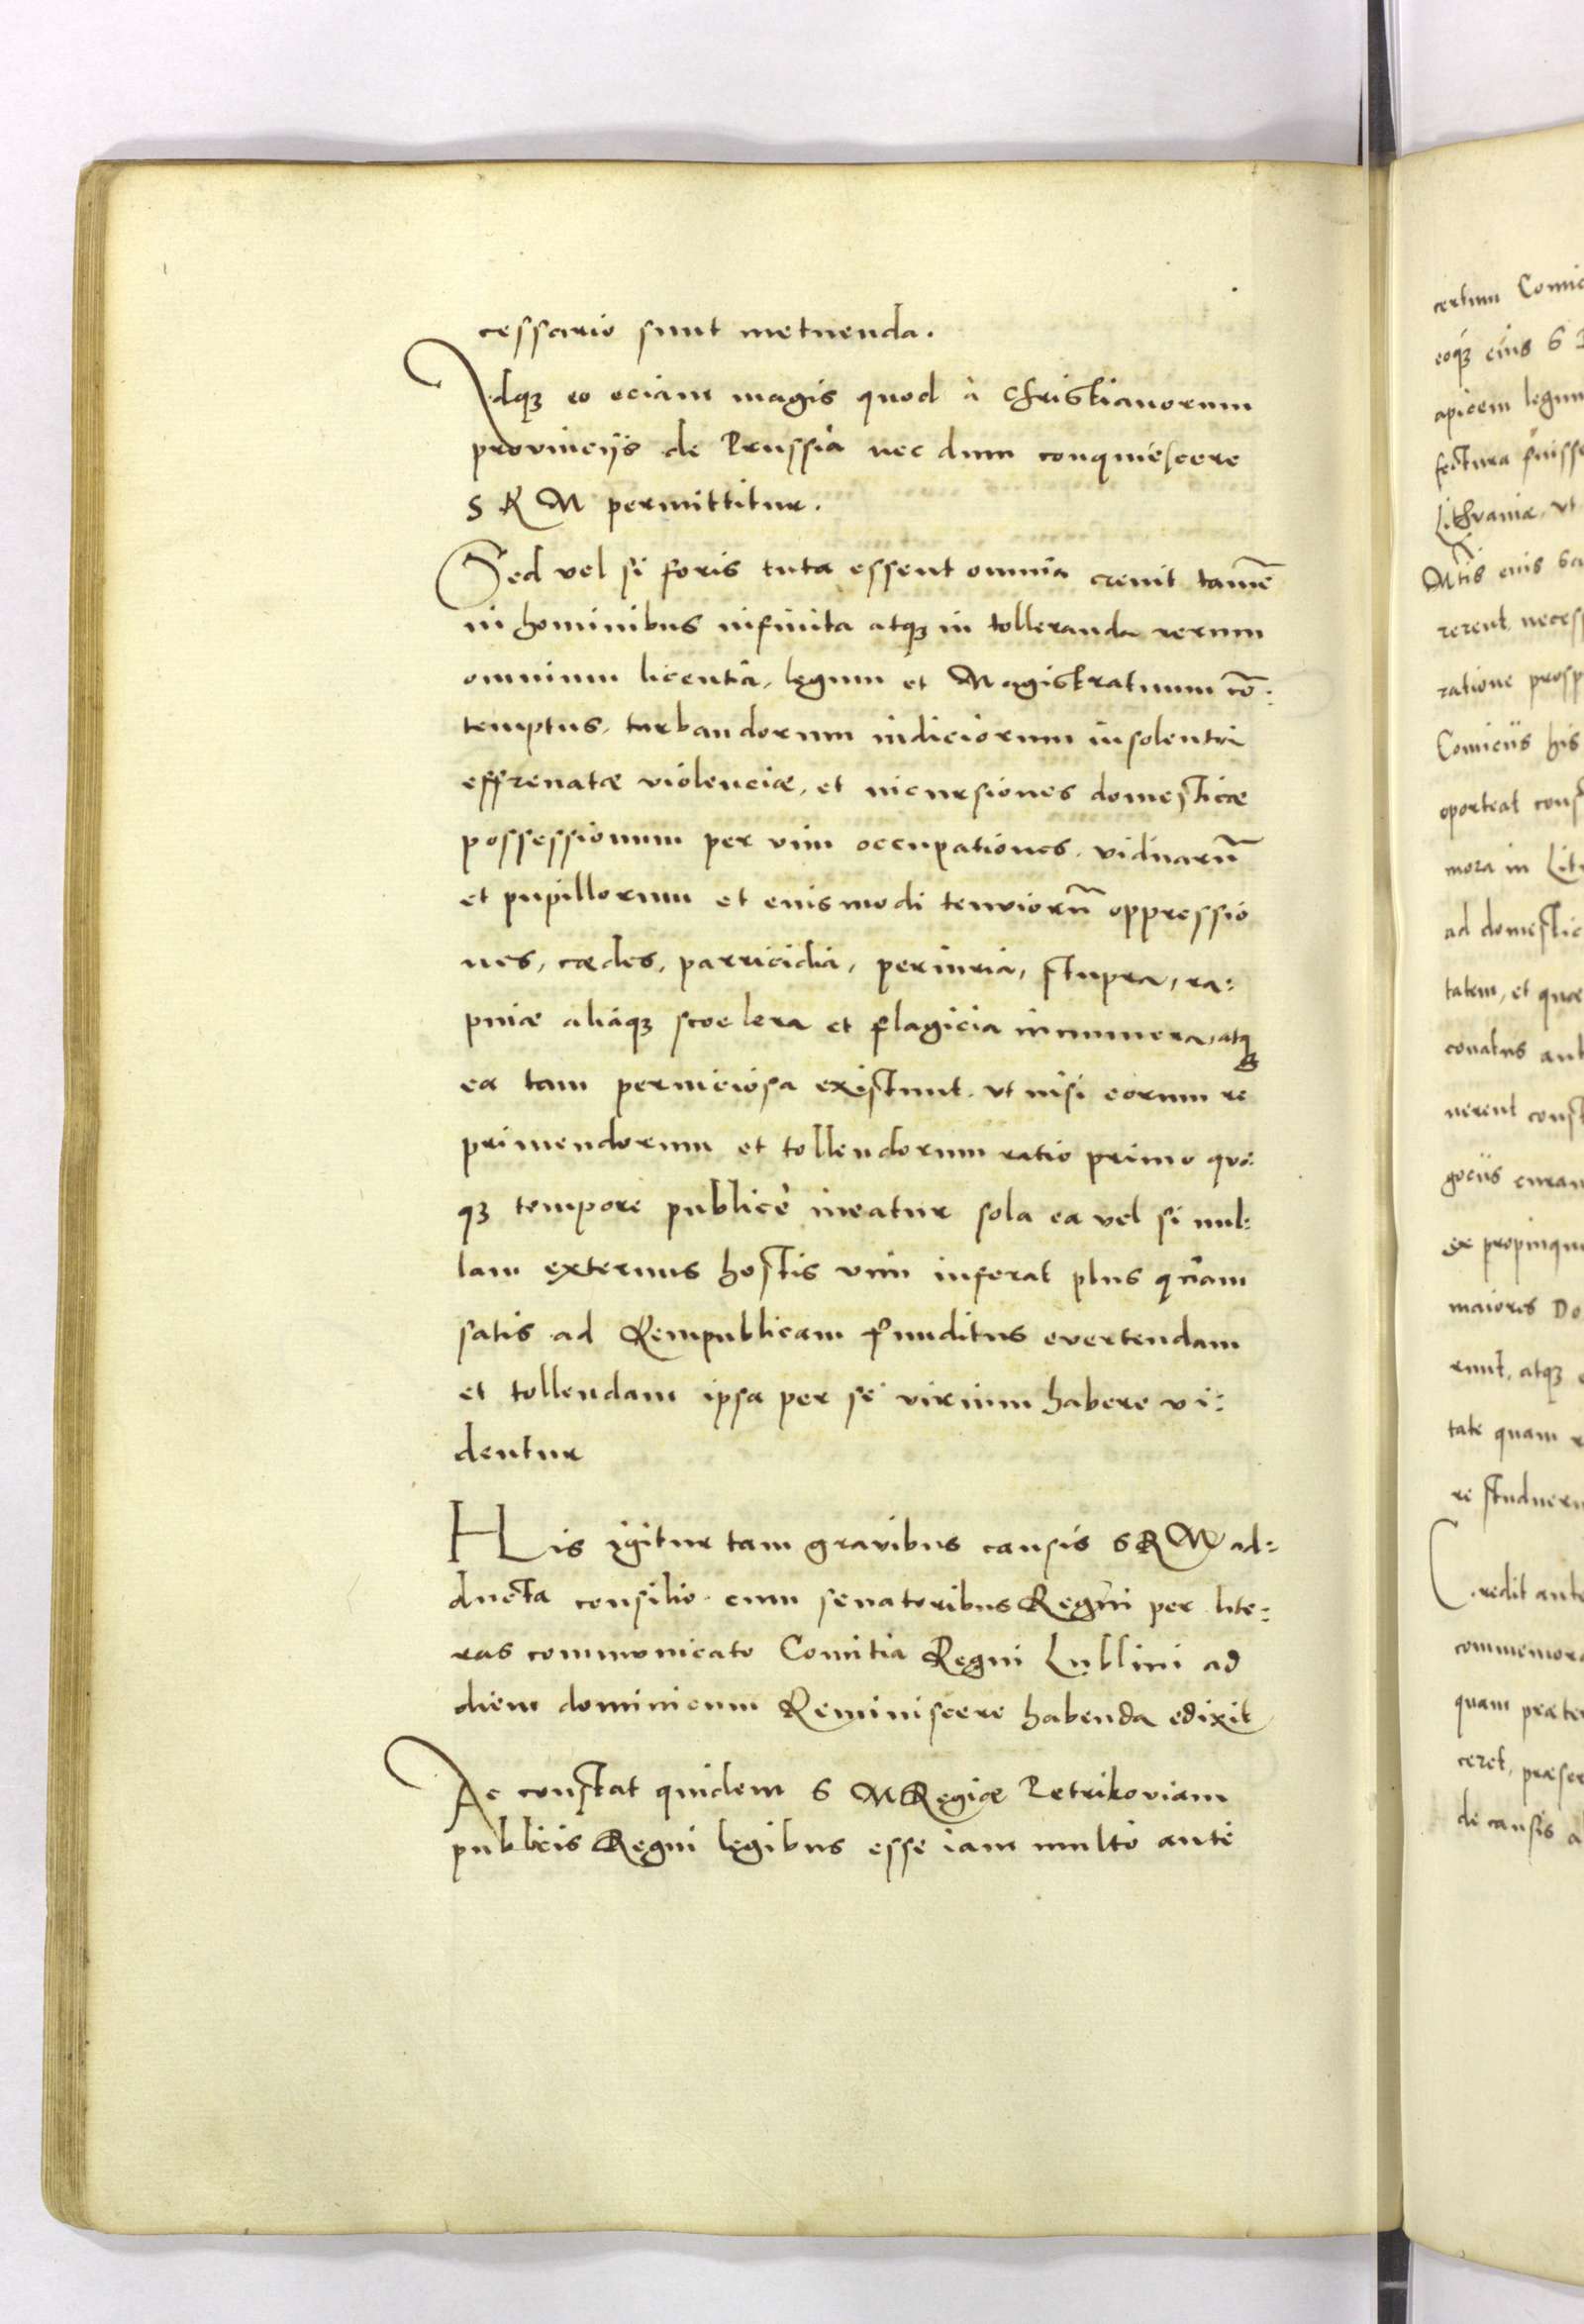 cessario sunt metuenda.
Idqȝ eo eciam magis quod à Christianorum
provincijs de Prussia nec dum conquiescere
S R M permittitur.
Sed vel si foris tuta essent omnia crevit tamē
in hominibus infinita atqȝ in tolleranda rerum
omnium licentia, legum et Magistratuum cō:
temptus, turbandorum iudiciorum insolentia
effrenatæ violenciæ, et incursiones domesticæ
possessionum per vim occupationes, viduarū
et pupillorum et eiusmodi tenuiorū oppressio
nes, cædes, parricidia, periuria, stupra, ra:
pinæ aliaqȝ scoelera et flagicia innumera, atqȝ
ea tam perniciosa existunt, ut nisi eorum re
primendorum et tollendorum ratio primo quo:
qȝ tempore publicè ineatur sola ea vel si nul:
lam externus hostis vim inferat plus quam
satis ad Rempublicam funditus evertendam
et tollendam ipsa per se virium habere vi:
dentur
His igitur tam gravibus causis S R M ad:
ducta consilio cum senatoribus Regni per lite:
ras communicato Comitia Regni Lublini ad
diem dominicum Reminiscere habenda edixit
Ac constat quidem S M Regiæ Petrikoviam
publicis Regni legibus esse iam multo ante
certum
eoqȝ eius
apicem legum
fectura
Lithvaniæ, ut
Mtis eius
rerent
ratione
Comiciis his
oporteat
mora in
ad
tatem, et quæ
conatus
verent
gociis
ex
maiores
runt, atqȝ
tate quam
re
Credit
quam
ceret,
de causis